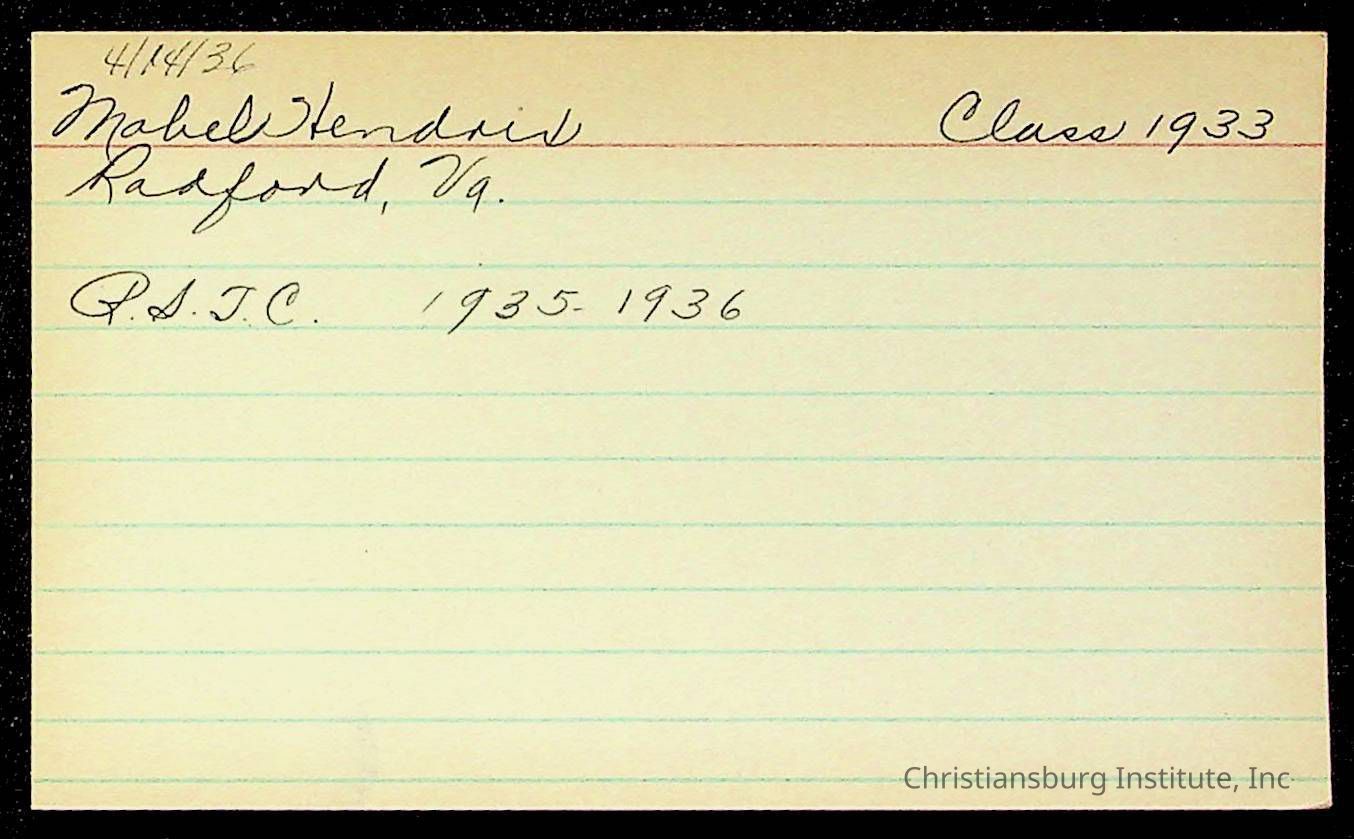 4/14/36
Mabel Hendrix Class 1933
Radford, Va.
P.S.T.C. 1935-1936
Christiansburg Institute, Inc